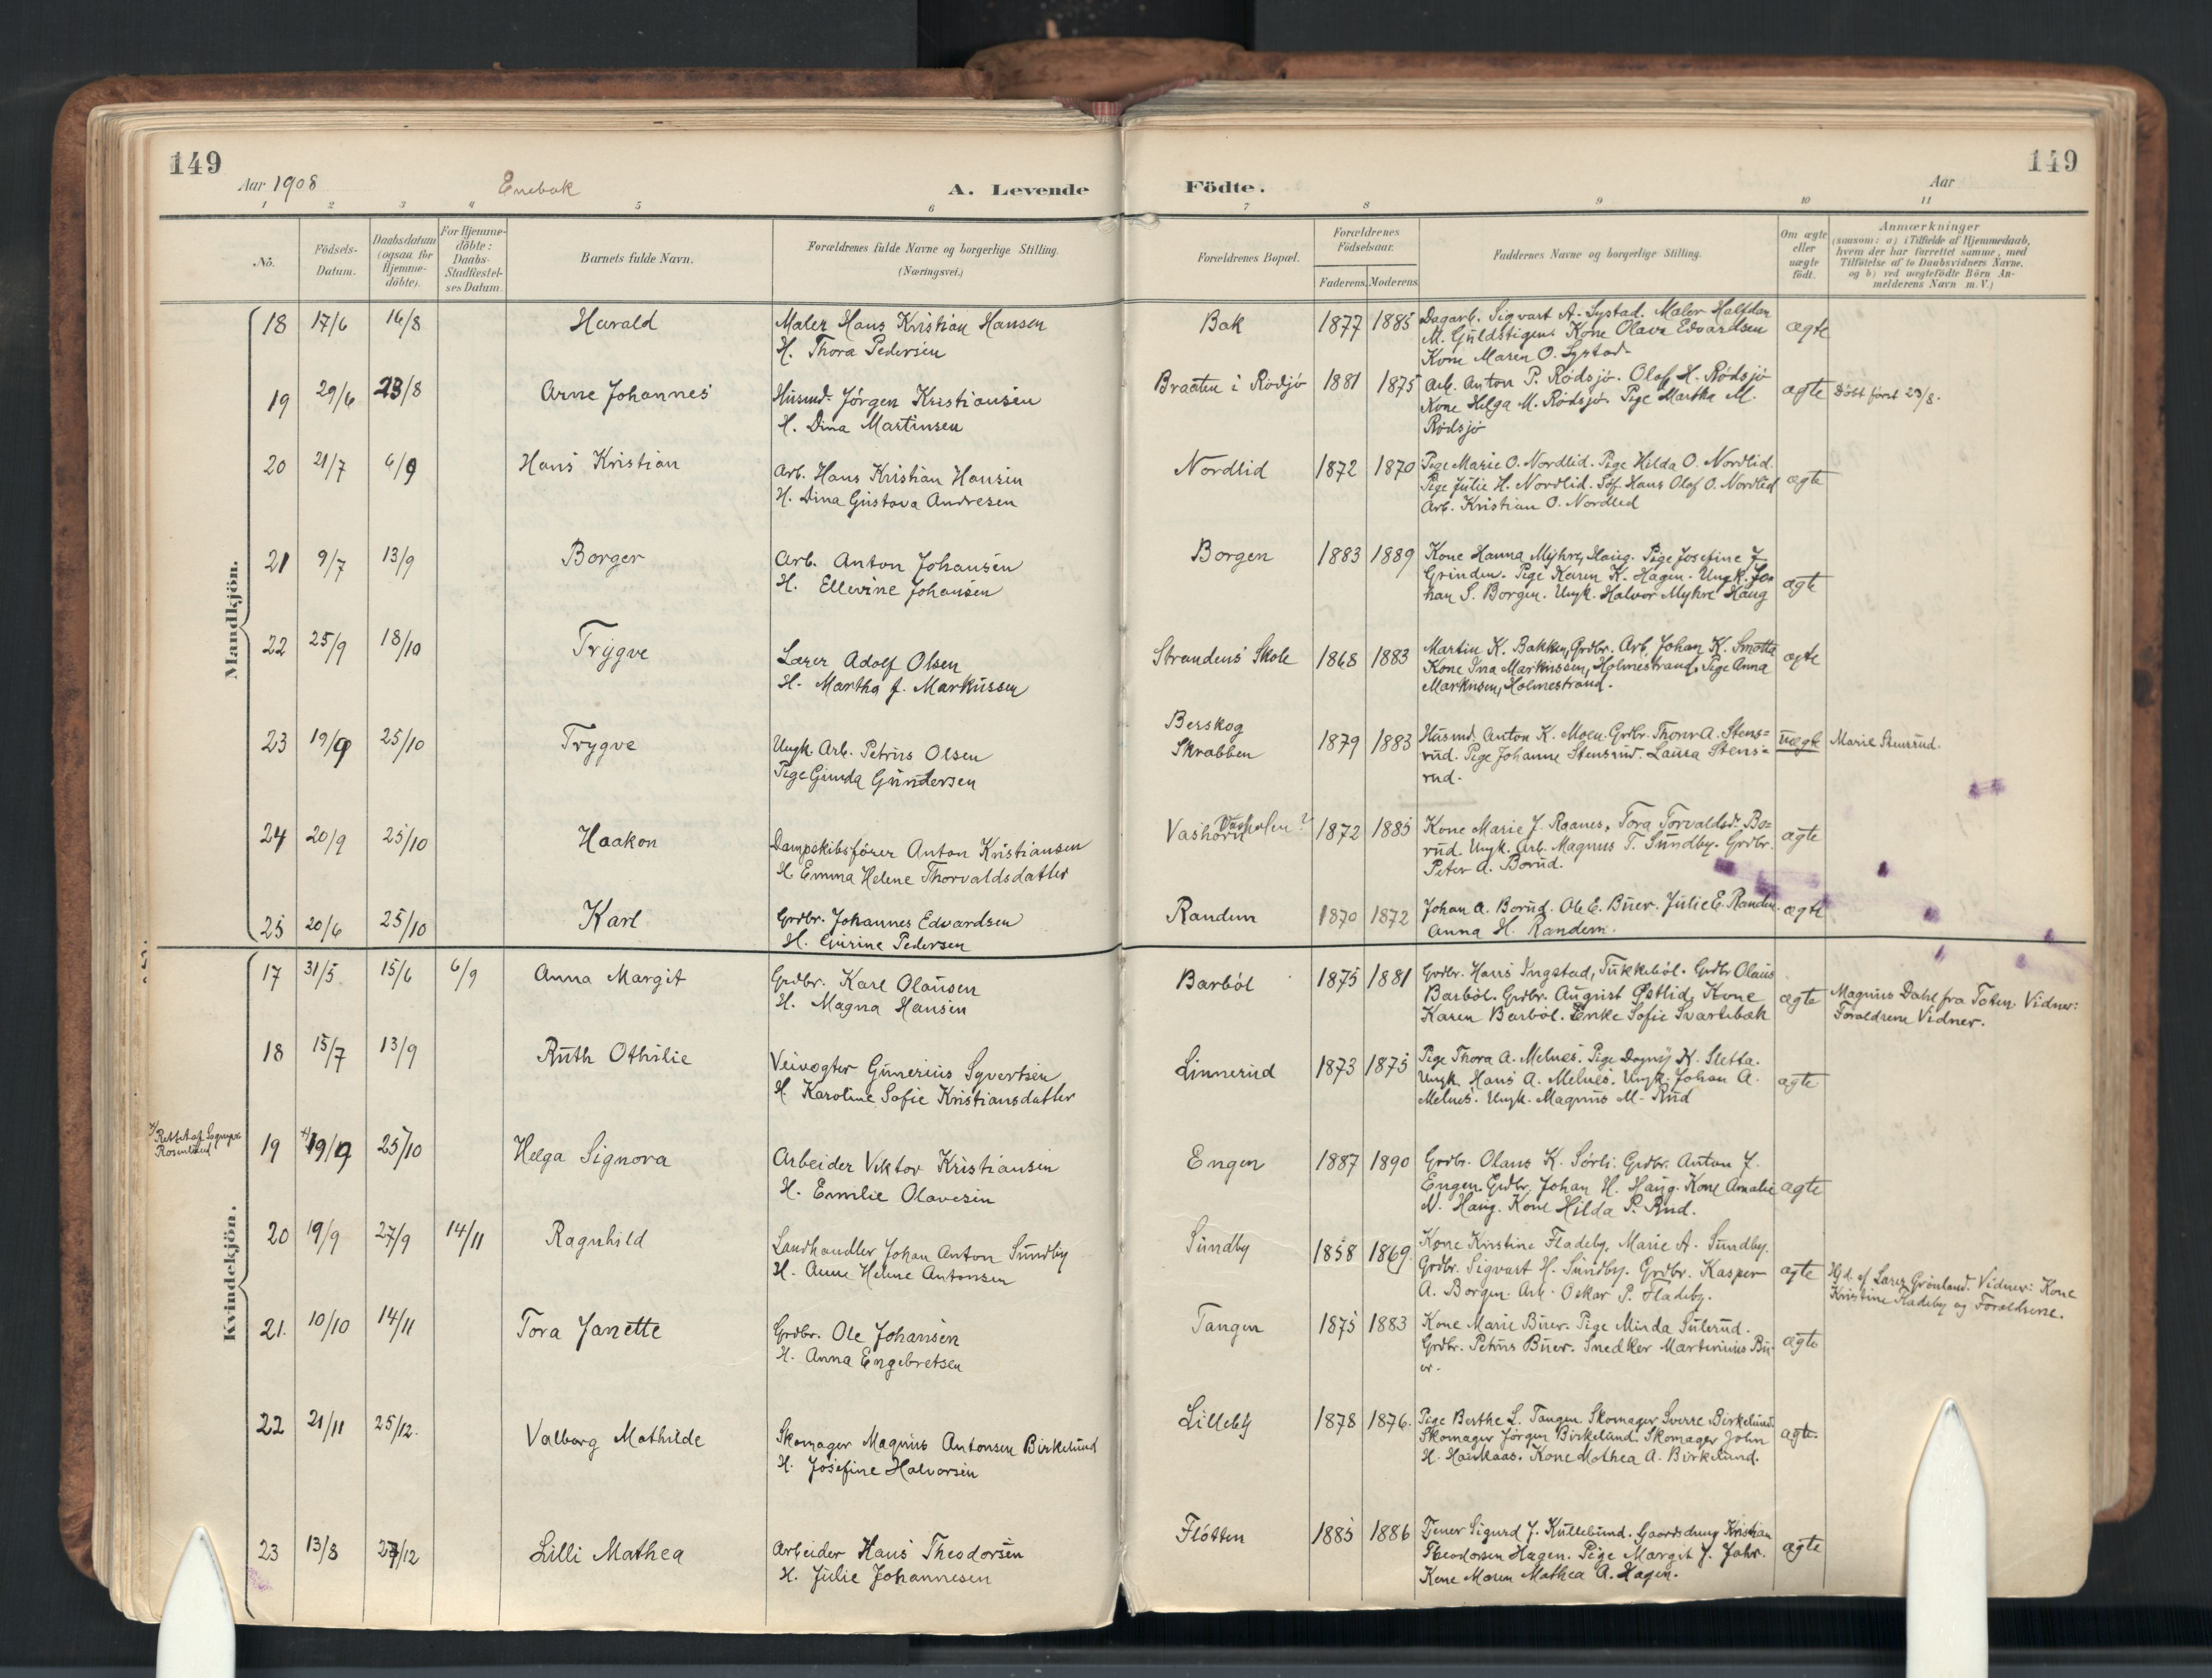 149
Aar 1908
Enebak
A. Levende
1 2 3 4 5 6
No.
Födsels-
Datum.
Daabsdatum
(ogsaa for
Hjemme-
döbte).
For Hjemme-
döbte:
Daabs-
Stadfæstel-
ses Datum.
Barnets fulde Navn.
Forældrenes fulde Navne og borgerlige Stilling.
(Næringsvei.)
Mandkjön.
18 17/6 16/8 Harald Maler Hans Kristian Hansen
H. Thora Pedersen
19 29/6 23/8 Arne Johannes Husmd. Jörgen Kristiansen
H. Dina Martinsen
20 21/7 6/9 Hans Kristian Arb. Hans Kristian Hansen
H. Dina Gustava Andresen
21 9/7 13/9 Borger Arb. Anton Johansen
H. Ellevine Johansen
22 25/9 18/10 Trygve Lærer Adolf Olsen
H. Martha J. Markussen
23 19/9 25/10 Trygve Ungk. Arb. Petrus Olsen
Pige Gunda Gundersen
24 20/9 25/10 Haakon Dampskibsförer Anton Kristiansen
H. Emma Helene Thorvaldsdatter
25 20/6 25/10 Karl Grdbr. Johannes Edvardsen
H. Gurine Pedersen
Kvindekjön.
17 31/5 15/6 6/9 Anna Margit Grdbr. Karl Olausen
H. Magna Hansen
18 15/7 13/9 Ruth Othilie Veivogter Gunerius Syvertsen
H. Karoline Sofie Kristiansdatter
Rettet af Sognepr.
19 19/9 25/10 Helga Signora Arbeider Viktor Kristiansen
H. Emilie Olavesen
20 19/9 27/9 14/11 Ragnhild Landhandler Johan Anton Sundby
H. Anne Helene Antonsen
21. 10/10 14/11 Tora Janette Grdbr. Ole Johansen
H. Anna Engebretsen
22 21/11 25/12. Valborg Mathilde Skomager Magnus Antonsen Birkelund
H. Josefine Halvorsen
23 13/8 27/12 Lilli Mathea Arbeider Hans Theodorsen
H. Julie Johannesen
149
Födte.
Aar
7 8 9 10 11
Forældrenes Bopæl.
Forældrenes
Födselsaar.
Faderens. Moderens.
Faddernes Navne og borgerlige Stilling.
Om ægte
eller
uægte
födt.
Anmærkninger
(saasom: a) i Tilfælde af Hjemmedaab,
hvem der har forrettet samme, med
Tilföielse af to Daabsvidners Navne,
og b) ved uægtefödte Börn An-
melderens Navn m. V.)
Bak 1877 1885 Dagarb. Sigvart A. Systad. Maler Halfdan
M. Guldstigen. Kone Olava Edvardsen ægte
Kone Maren O. Systad.
Braaten i Rodsjö 1881 1875 Arb. Anton P. Rödsjö. Olaf H. Rödsjö
Kone Helga M. Rødsjø. Pige Martha M. ægte Döbt först 23/8.
Rødsjø
Nordlid 1872 1870 Pige Marie O. Nordlid. Pige Hilda O. Nordlid.
Pige Julie H. Nordlid. Söf. Hans Olaf O. Nordlid ægte
Arb. Kristian O. Nordlid
Borgen 1883 1889 Kone Hanna Myhre, Haug. Pige Josefine J.
Grinden. Pige Karen K. Hagen. Ungk. Jo-
han S. Borgen. Ungk. Halvor Myhre Haug ægte
Strandens Skole 1868 1883 Martin K. Bakken, Grdbr. Arb. Johan K. Smotte
Kone Ina Markussen, Holmestrand, Pige Anna ægte
Markusen, Holmestrand.
Berskog
Skrabben 1879 1883 Husmd. Anton K. Moen. Grdbr. Thorv A. Stens=
rud. Pige Johanne Stensrud. Laura Stens= uægte Marie Stensrud.
rud.
Vashorn Vasholen? 1872 1885 Kone Marie J. Raanes, Tora Torvaldsd. Bo=
rud. Ungk. Arb. Magnus T. Sundby. Grdbr. ægte
Peter A. Borud.
Randem 1870 1872 Johan A. Borud. Ole E. Buer. Julie E. Randem. ægte
Anna H. Randem.
Barböl 1875 1881 Grdbr. Hans Ingstad, Tukkeböl. Grdbr Olaus
Barböl. Grdbr. August Østlid. Kone ægte Magnus Dahl fra Toten. Vidner:
Karen Barböl. Enke Sofie Svartebæk Forældrene Vidner.
Linnerud 1873 1875 Pige Thora A. Melnes. Pige Dagny K. Sletta.
Ungk. Hans A. Melnes. Ungk. Johan A. ægte
Melnes. Ungk. Magnus M. Rud
Engen 1887 1890 Grdbr. Olaus K. Sörli. Grdbr. Anton J.
Engen. Grdbr. Johan H. Haug. Kone Amalie ægte
N. Haug. Kone Hilda P. Rud.
Sundby 1858 1869. Kone Kristine Fladeby. Marie A. Sundby.
Grdbr. Sigvart H. Sundby. Grdbr. Kasper ægte Hjd. af Lærer Grönland. Vidner: Kone
A. Borgen. Arb. Oskar P. Fladeby. Kristine Fladeby og Forældrene.
Tangen 1875 1883 Kone Marie Buer. Pige Minda Sulerud.
Grdbr. Petrus Buer. Snedker Martinius Bu- ægte
er.
Lilleby 1878 1876. Pige Berthe L. Tangen. Skomager Sverre Birkelund.
Skomager Jörgen Birkelund. Skomager John ægte.
H. Haukaas. Kone Mathea A. Birkelund.
Flötten 1885 1886 Tjener Sigurd J. Kullebund. Gaardsdreng Kristian
Theodorsen Hagen. Pige Margit J. Jahr. ægte
Kone Maren Mathea A. Hagen.